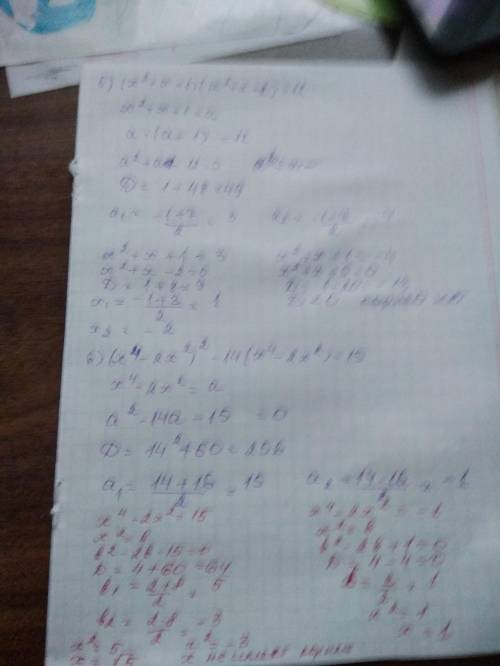 б) (x²+x+1)(x²+x+2)=12
x²+x+1=a
a·(a+1)=12
a²+a-12=0
D=1+48=49
a₁ = -1+7/2 = 3
x²+x+1=3 x²+x+1=-4
x²+x-2=0 x²+x+5=0
D=1+8=9
x₁ = -1+3/2 = 1
x₂ = -2
в) (x⁴-2x²)²-14(x⁴-2x²)=15
x⁴-2x²=a
a²-14a-15=0
D=14²+60=256
a₁ = 14+16/2 = 15 a₂ = 14-16/2 = -1
x⁴-2x²=15 x⁴-2x²=-1
x²=b x²=b
b²-2b-15=0 b²-2b+1=0
D=4+60=64 D=4-4=0
b₁ = 2+8/2 = 5 b = 2/2 = 1
b₂ = 2-8/2 = -3 x²=1
x²=5 x²=-3 x=1
x=√5 x не имеет